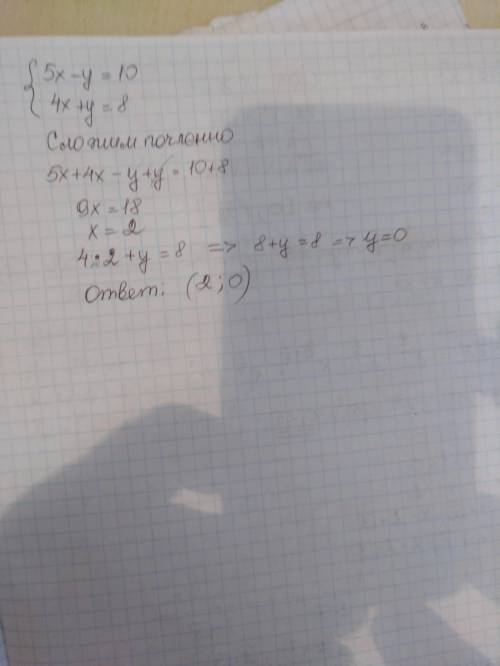 5x - y = 10
4x + y = 8
Сложим почленно
5x + 4x - y + y = 10 + 8
9x = 18
x = 2
4 · 2 + y = 8 => 8 + y = 8 => y = 0
Ответ: (2; 0)